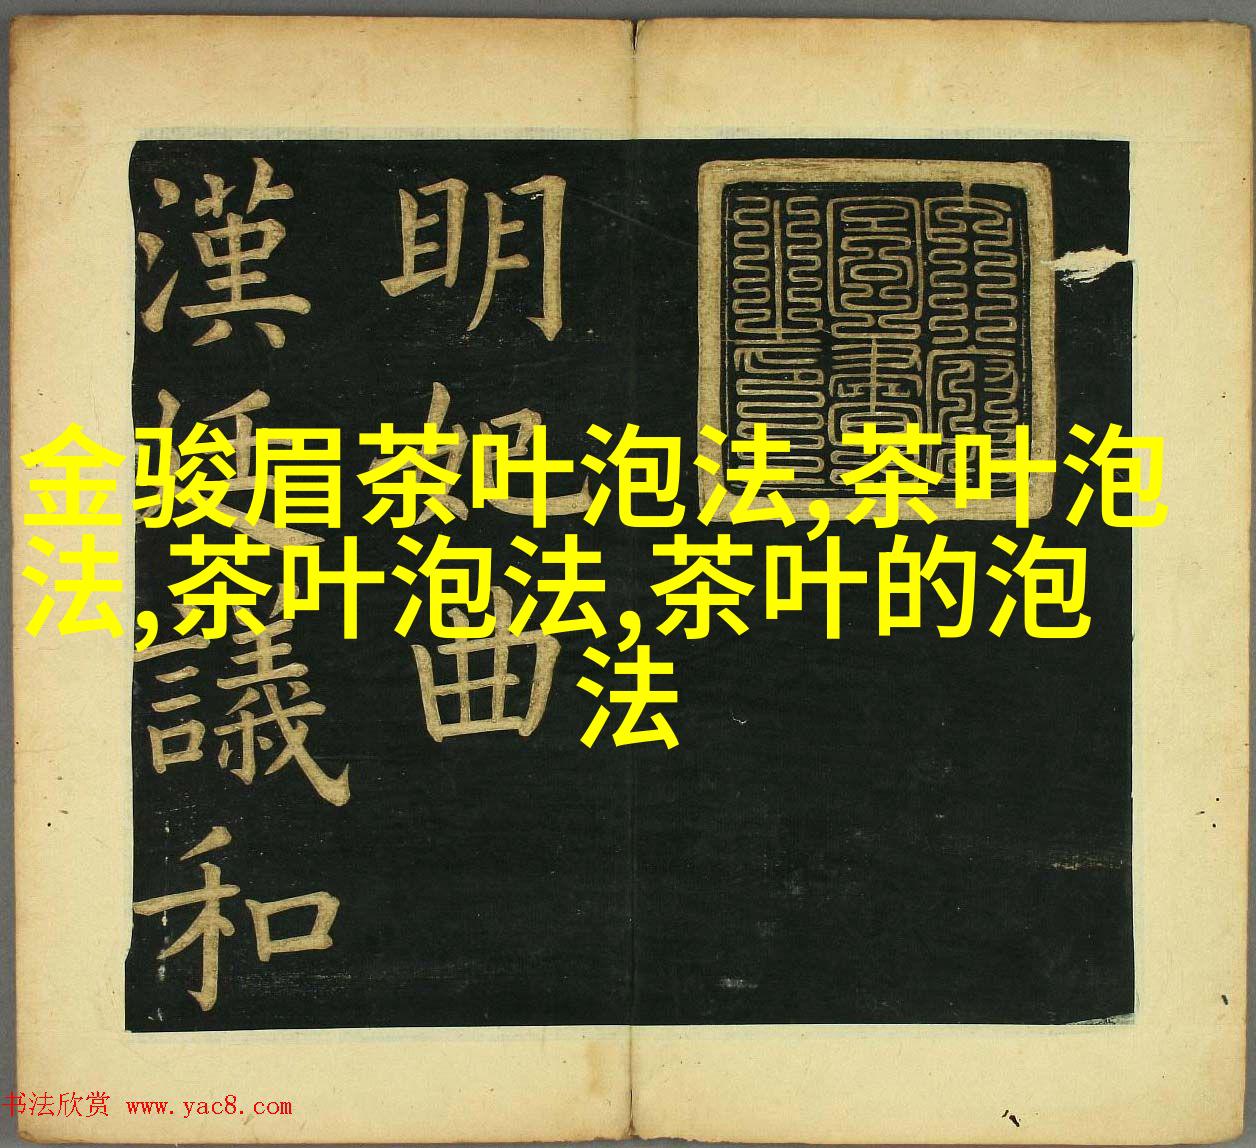 金骏眉茶叶泡法,茶叶泡
法,茶叶泡法,茶叶的泡
法
明妃曲
漢廷議和
书法欣赏 www.yac8.com